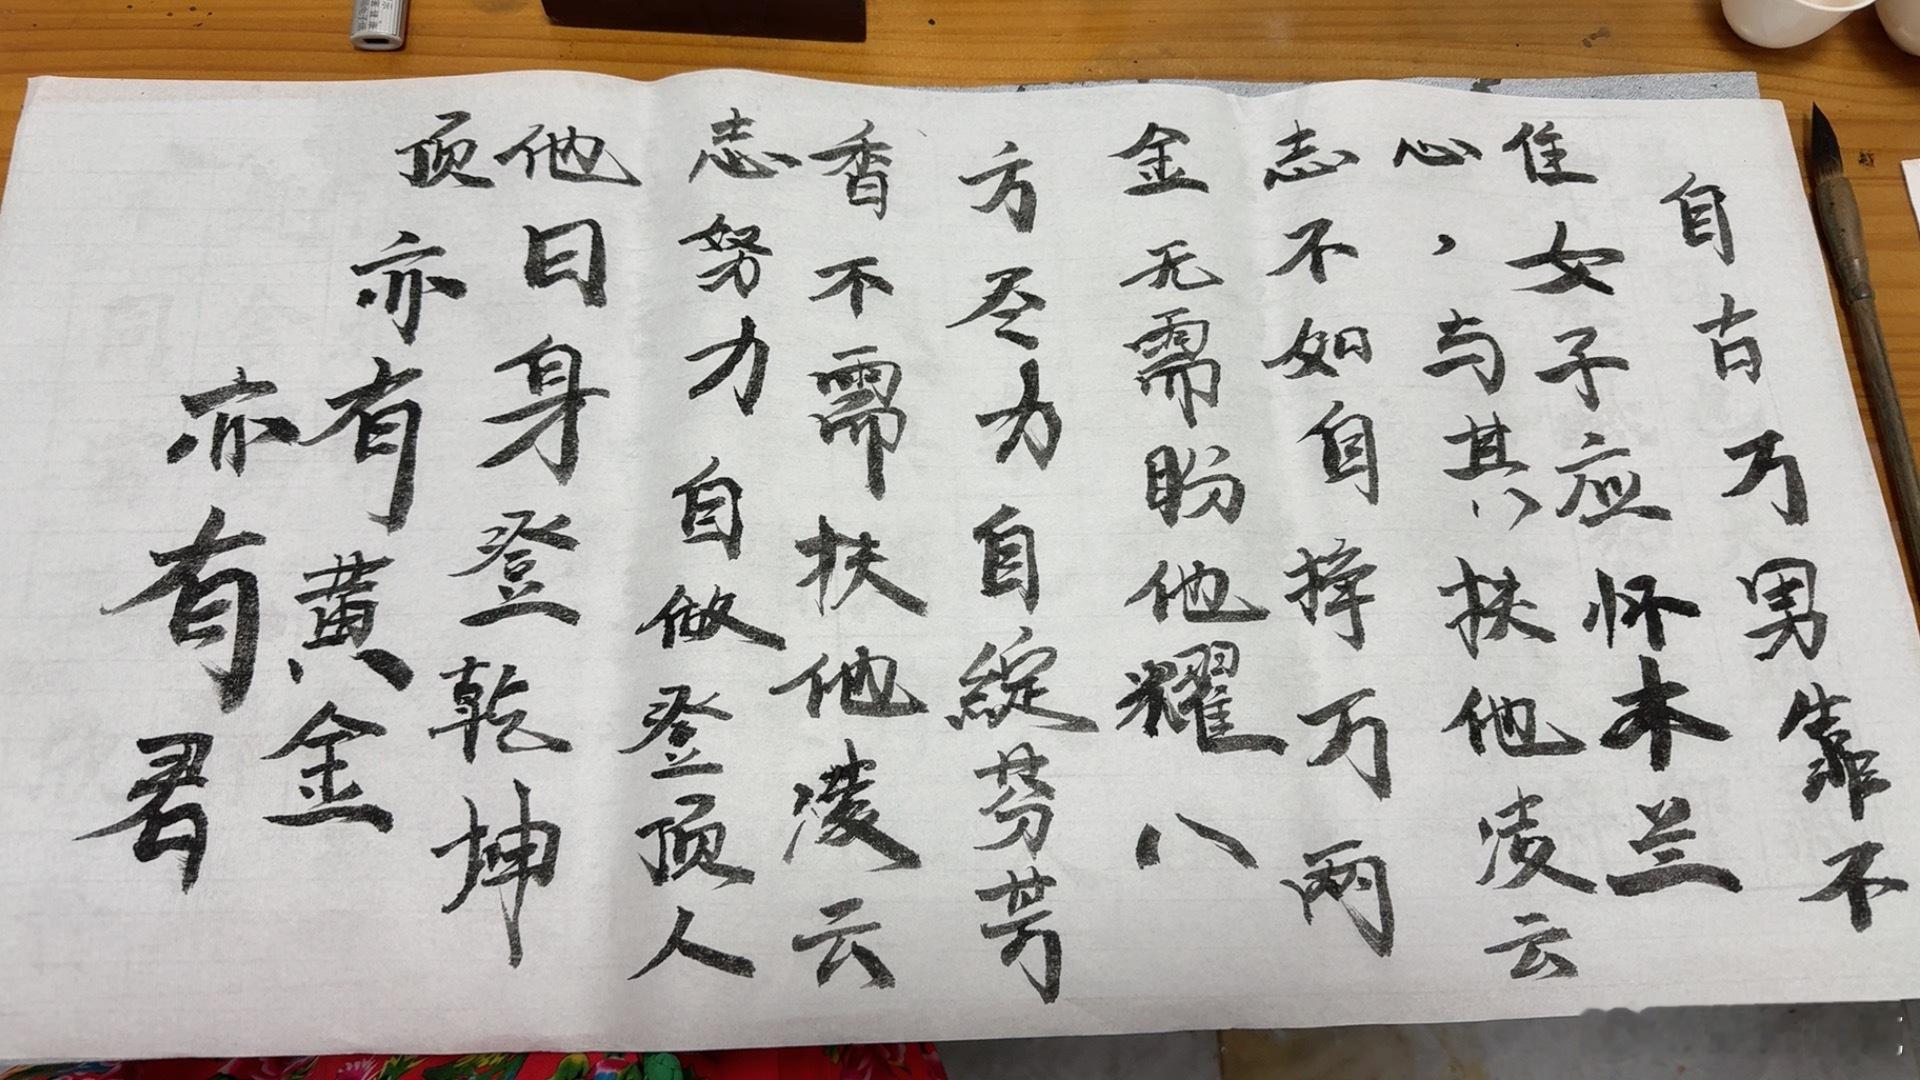 自古万男靠不
住女子应怀木兰
心，与其扶他凌云
志不如自挣万两
金无需盼他耀八
方尽力自绽芬芳
香不需扶他凌云
志努力自做登顶人
他日身登乾坤
顶亦有黄金
亦有君